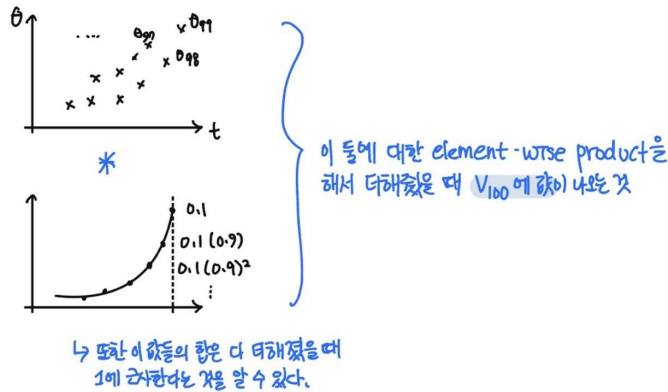 θ
....
θ97
θ99
θ98
t
*
0.1
0.1(0.9)
0.1(0.9)²
⋮
이 둘에 대한 element-wise product을
해서 더해줬을 때 V100에 값이 나오는 것
↳ 또한 이 값들의 합은 다 더해졌을 때
1에 근사한다는 것을 알 수 있다.